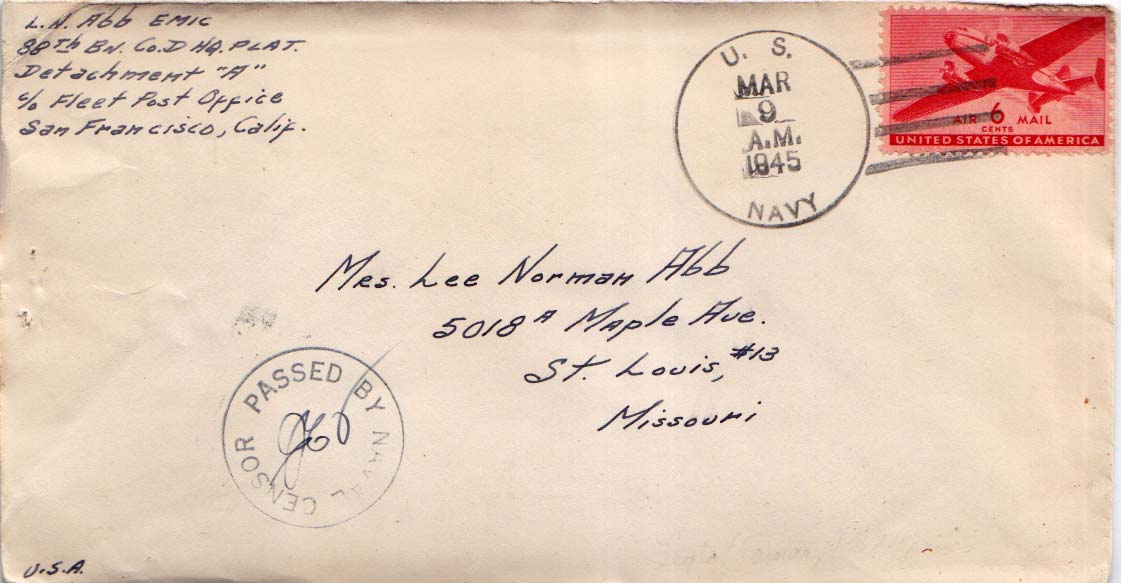 L.N. Abb EM1C
88Th Bn. Co.D HQ. PLAT.
Detachment "A"
c/o Fleet Post Office
San Francisco, Calif.
U. S.
MAR
9
A.M.
1945
NAVY
AIR 6 MAIL
CENTS
UNITED STATES OF AMERICA
Mrs. Lee Norman Abb
5018 A Maple Ave.
St. Louis, #13
Missouri
PASSED BY NAVAL CENSOR
U.S.A.